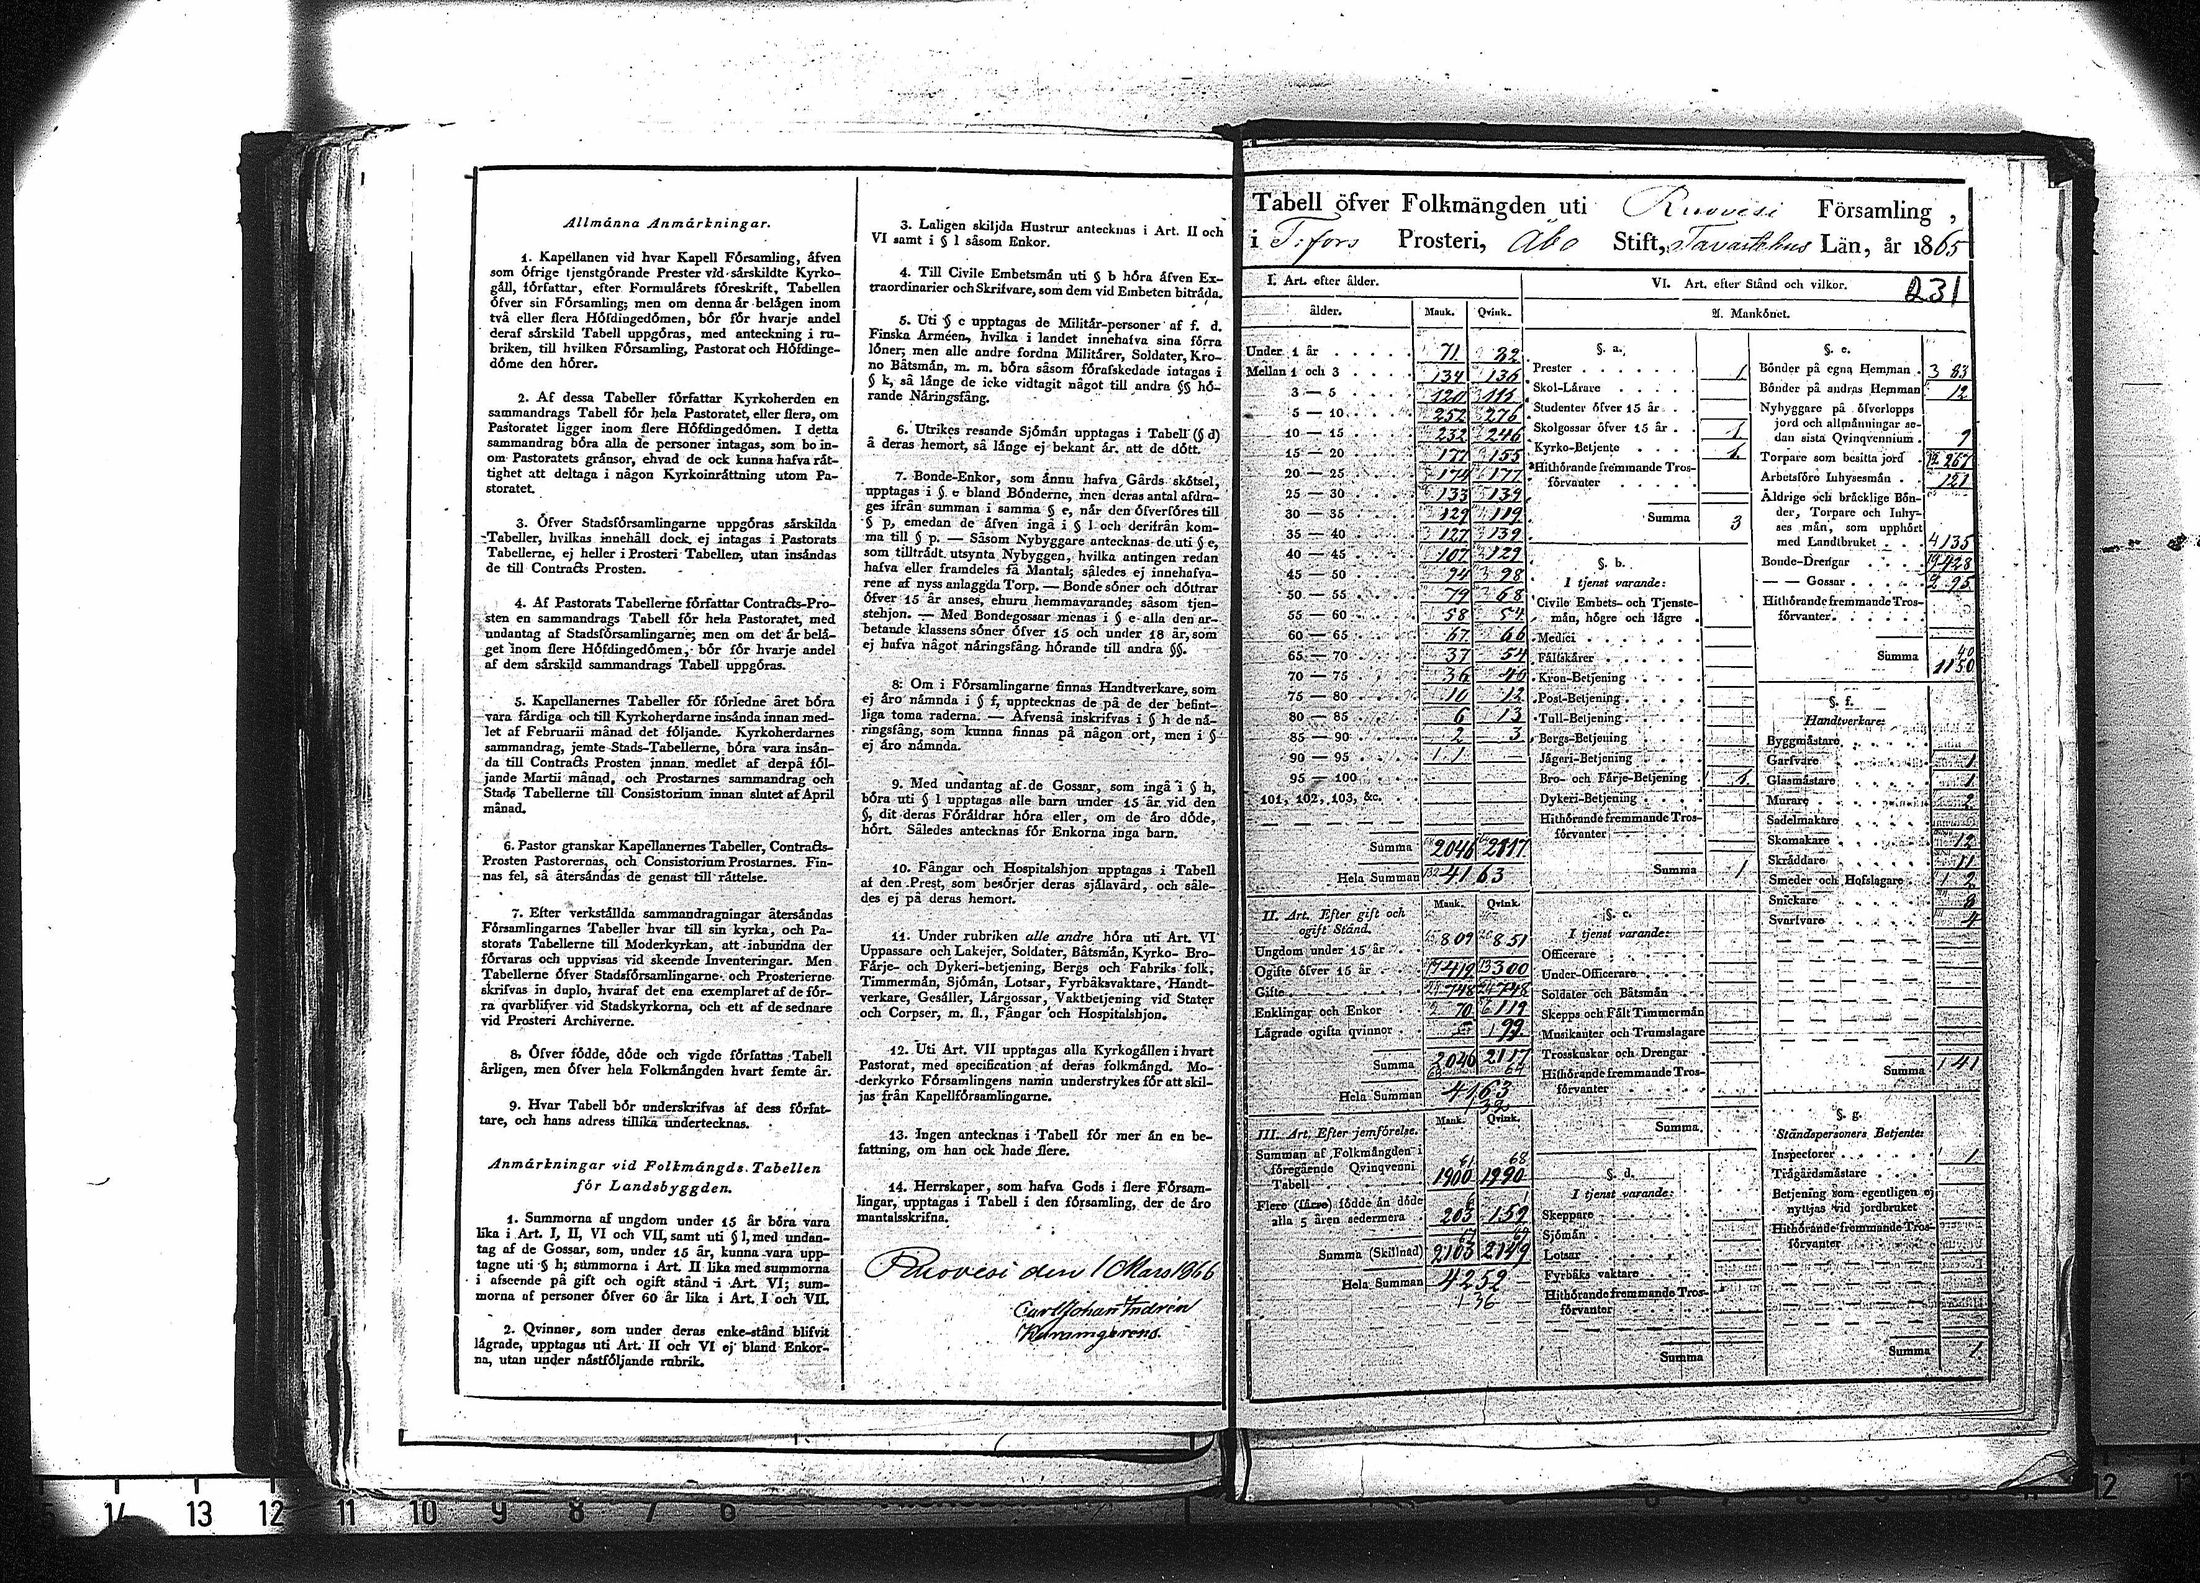 Allmånna Anmårkningar.
1. Kapéllanen vid hvar Kapell Fôrsamling, åfven
som ôfrige tjenstgôrande Prester vid sårskildte Kyrko-
gåll, fôrfattar, efter Formulårets fôreskrift, Tabellen
ôfver sin Fôrsamling; men om denna år belågen inom
två eller flera Hôfdingedômen, bôr fôr hvarje andel
deraf sårskild Tabell uppgôras, med anteckning i ru-
briken, till hvilken Fôrsamling, Pastorat och Hôfdinge-
dôme den hôrer.
2. Af dessa Tabeller fôrfattar Kyrkoherden en
sammandrags Tabell fôr hela Pastoratet, eller flera, om
Pastoratet ligger inom flere Hôfdingedômen. I detta
sammandrag bôra alla de personer intagas, som bo in-
om Pastoratets grånsor, ehvad de ock kunna hafva råt-
tighet att deltaga i någon Kyrkoinråttning utom Pa-
storatet.
3. Ôfver Stadsfôrsamlingarne uppgôras sårskilda
Tabeller, hvilkas innehåll dock ej intagas i Pastorats
Tabellerne, ej heller i Prosteri Tabellen, utan insåndas
de till Contracts Prosten.
4. Af Pastorats Tabellerne fôrfattar Contracts-Pro-
sten en sammandrags Tabell fôr hela Pastoratet, med
undantag af Stadsfôrsamlingarne; men om det år belå-
get inom flere Hôfdingedômen, bôr fôr hvarje andel
af dem sårskild sammandrags Tabell uppgôras.
5. Kapellanernes Tabeller fôr fôrledne året bôra
vara fårdiga och till Kyrkoherdarne insånda innan med-
let af Februarii månad det fôljande. Kyrkoherdarnes
sammandrag, jemte Stads-Tabellerne, bôra vara insån-
da till Contracts Prosten innan medlet af derpå fôl-
jande Martii månad, och Prostarnes sammandrag och
Stads Tabellerne till Consistorium innan slutet af April
månad.
6. Pastor granskar Kapellanernes Tabeller, Contracts-
Prosten Pastorernas, och Consistorium Prostarnes. Fin-
nas fel, så återsåndas de genast till råttelse.
7. Efter verkstållda sammandragningar återsåndas
Fôrsamlingarnes Tabeller hvar till sin kyrka, och Pa-
storats Tabellerne till Moderkyrkan, att inbundna der
fôrvaras och uppvisas vid skeende Inventeringar. Men
Tabellerne ôfver Stadsfôrsamlingarne och Prosterierne
skrifvas in duplo, hvaraf det ena exemplaret af de fôr-
ra qvarblifver vid Stadskyrkorna, och ett af de sednare
vid Prosteri Archiverne.
8. Ôfver fôdde, dôde och vigde fôrfattas Tabell
årligen, men ôfver hela Folkmångden hvart femte år.
9. Hvar Tabell bôr underskrifvas af dess fôrfat-
tare, och hans adress tillika undertecknas.
Anmårkningar vid Folkmångds-Tabellen
fôr Landsbyggden.
1. Summorna af ungdom under 15 år bôra vara
lika i Art. I, II, VI och VII, samt uti § l, med undan-
tag af de Gossar, som, under 15 år, kunna vara upp-
tagne uti § h; summorna i Art. II lika med summorna
i afseende på gift och ogift stånd i Art. VI; sum-
morna af personer ôfver 60 år lika i Art. I och VII.
2. Qvinnor, som under deras enke-stånd blifvit
lågrade, upptagas uti Art. II och VI ej bland Enkor-
na, utan under nåstfôljande rubrik.
3. Laligen skiljda Hustrur antecknas i Art. II och
VI samt i § l såsom Enkor.
4. Till Civile Embetsmån uti § b hôra åfven Ex-
traordinarier och Skrifvare, som dem vid Embeten bitråda.
5. Uti § c upptagas de Militår-personer af f. d.
Finska Arméen, hvilka i landet innehafva sina fôrra
lôner; men alle andre fordna Militårer, Soldater, Kro-
no Båtsmån, m. m. bôra såsom fôrafskedade intagas i
§ k, så långe de icke vidtagit något till andra §§ hô-
rande Nåringsfång.
6. Utrikes resande Sjômån upptagas i Tabell (§ d)
å deras hemort, så långe ej bekant år, att de dôtt.
7. Bonde-Enkor, som ånnu hafva Gårds skôtsel,
upptagas i § e bland Bônderne, men deras antal afdra-
ges ifrån summan i samma § e, når den ôfverfôres till
§ p, emedan de åfven ingå i § l och derifrån kom-
ma till § p. — Såsom Nybyggare antecknas de uti § e,
som tilltrådt utsynta Nybyggen, hvilka antingen redan
hafva eller framdeles få Mantal; således ej innehafva-
rene af nyss anlaggda Torp. — Bonde sôner och dôttrar
ôfver 15 år anses, ehuru hemmavarande, såsom tjen-
stehjon. — Med Bondegossar menas i § e alla den ar-
betande klassens sôner ôfver 15 och under 18 år, som
ej hafva något nåringsfång hôrande till andra §§.
8. Om i Fôrsamlingarne finnas Handtverkare, som
ej åro nåmnda i § f, upptecknas de på de der befint-
liga toma raderna. — Åfvenså inskrifvas i § h de nå-
ringsfång, som kunna finnas på någon ort, men i §
ej åro nåmnda.
9. Med undantag af de Gossar, som ingå i § h,
bôra uti § l upptagas alle barn under 15 år vid den
§, dit deras Fôråldrar hôra eller, om de åro dôde,
hôrt. Således antecknas fôr Enkorna inga barn.
10. Fångar och Hospitalshjon upptagas i Tabell
af den Prest, som besôrjer deras sjålavård, och såle-
des ej på deras hemort.
11. Under rubriken alle andre hôra uti Art. VI
Uppassare och Lakejer, Soldater, Båtsmån, Kyrko- Bro-
Fårje- och Dykeri-betjening, Bergs och Fabriks folk,
Timmermån, Sjômån, Lotsar, Fyrbåksvaktare, Handt-
verkare, Gesåller, Lårgossar, Vaktbetjening vid Stater
och Corpser, m. fl., Fångar och Hospitalshjon.
12. Uti Art. VII upptagas alla Kyrkogållen i hvart
Pastorat, med specification af deras folkmångd. Mo-
derkyrko Fôrsamlingens namn understrykes fôr att skil-
jas från Kapellfôrsamlingarne.
13. Ingen antecknas i Tabell fôr mer ån en be-
fattning, om han ock hade flere.
14. Herrskaper, som hafva Gods i flere Fôrsam-
lingar, upptagas i Tabell i den fôrsamling, der de åro
mantalsskrifna.
Ruovesi den 1 Mars 1866
Carl Johan Indrén
Tabell öfver Folkmängden uti Ruovesi Församling,
i T:fors Prosteri, Åbo Stift, Tavastehus Län, år 1865
I. Art. efter ålder.
VI. Art. efter Stånd och vilkor. 231
ålder. Mank. Qvink.
A. Mankönet.
Under 1 år 71
Mellan 1 och 3 134 136
3 — 5 120 115
5 — 10 252 276
10 — 15 232 246
15 — 20 177 155
20 — 25 174 177
25 — 30 133 139
30 — 35 129 119
35 — 40 127 139
40 — 45 107 129
45 — 50 94 98
50 — 55 79 68
55 — 60 58 54
60 — 65 67 66
65 — 70 37 54
70 — 75 36 46
75 — 80 10 12
80 — 85 6 13
85 — 90 2 3
90 — 95 1
95 — 100
101, 102, 103, &c.
Summa 2046 2117
Hela Summan 4163
II. Art. Efter gift och
ogift Stånd.
Mank. Qvink.
Ungdom under 15 år 809 851
Ogifte ôfver 15 år 419 300
Gifte 748 748
Enklingar och Enkor 70 119
Lågrade ogifta qvinnor 99
Summa 2046 2117
Hela Summan 4163
III. Art. Efter jemfôrelse.
Mank. Qvink.
Summan af Folkmångden i
fôregående Qvinqvenni
Tabell 1900 1990
Flere (fårre) fôdde ån dôde
alla 5 åren sedermera 203 159
Summa (Skillnad) 2103 2149
Hela Summan 4252
136
§. a.
Prester 1
Skol-Lårare
Studenter ôfver 15 år
Skolgossar ôfver 15 år 1
Kyrko-Betjente 1
Hithôrande fremmande Tros-
fôrvanter
Summa 3
§. b.
I tjenst varande:
Civile Embets- och Tjenste-
mån, hôgre och lågre
Medici
Fåltskårer
Kron-Betjening
Post-Betjening
Tull-Betjening
Bergs-Betjening
Jågeri-Betjening
Bro- och Fårje-Betjening 1
Dykeri-Betjening
Hithôrande fremmande Tros-
fôrvanter
Summa 1
§. c.
I tjenst varande:
Officerare
Under-Officerare
Soldater och Båtsmån
Skepps och Fålt Timmermån
Musikanter och Trumslagare
Trosskuskar och Drengar
Hithôrande fremmande Tros-
fôrvanter
Summa
§. d.
I tjenst varande:
Skeppare
Sjômån
Lotsar
Fyrbåks vaktare
Hithôrande fremmande Tros-
fôrvanter
Summa
§. e.
Bônder på egna Hemman 383
Bônder på andras Hemman 12
Nybyggare på ôfverlopps
jord och allmånningar se-
dan sista Qvinqvennium 9
Torpare som besitta jord 267
Arbetsfôre Inhysesmån 121
Åldrige och bråcklige Bôn-
der, Torpare och Inhy-
ses mån, som upphôrt
med Landtbruket 135
Bonde-Drengar 428
— — Gossar 95
Hithôrande fremmande Tros-
fôrvanter
Summa
§. f.
Handtverkare:
Byggmåstare
Garfvare 1
Glasmåstare 1
Murare 2
Sadelmakare
Skomakare 12
Skråddare 11
Smeder och Hofslagare 2
Snickare 8
Svarfvare 4
Summa 41
§. g.
Ståndspersoners Betjente:
Inspectorer 1
Trågårdsmåstare
Betjening som egentligen ej
nyttjas vid jordbruket
Hithôrande fremmande Tros-
fôrvanter
Summa 1
15 14 13 12 11 10 9 8 7 6